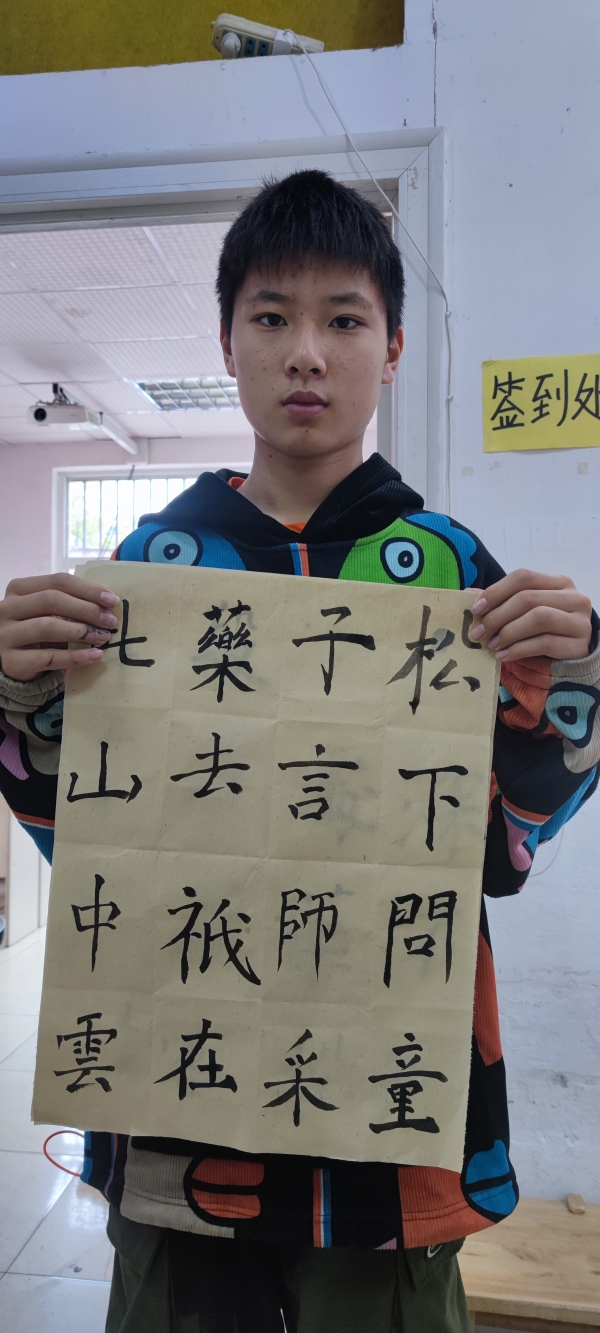 松下問童
子言師采
藥去祇在
此山中雲
签到处